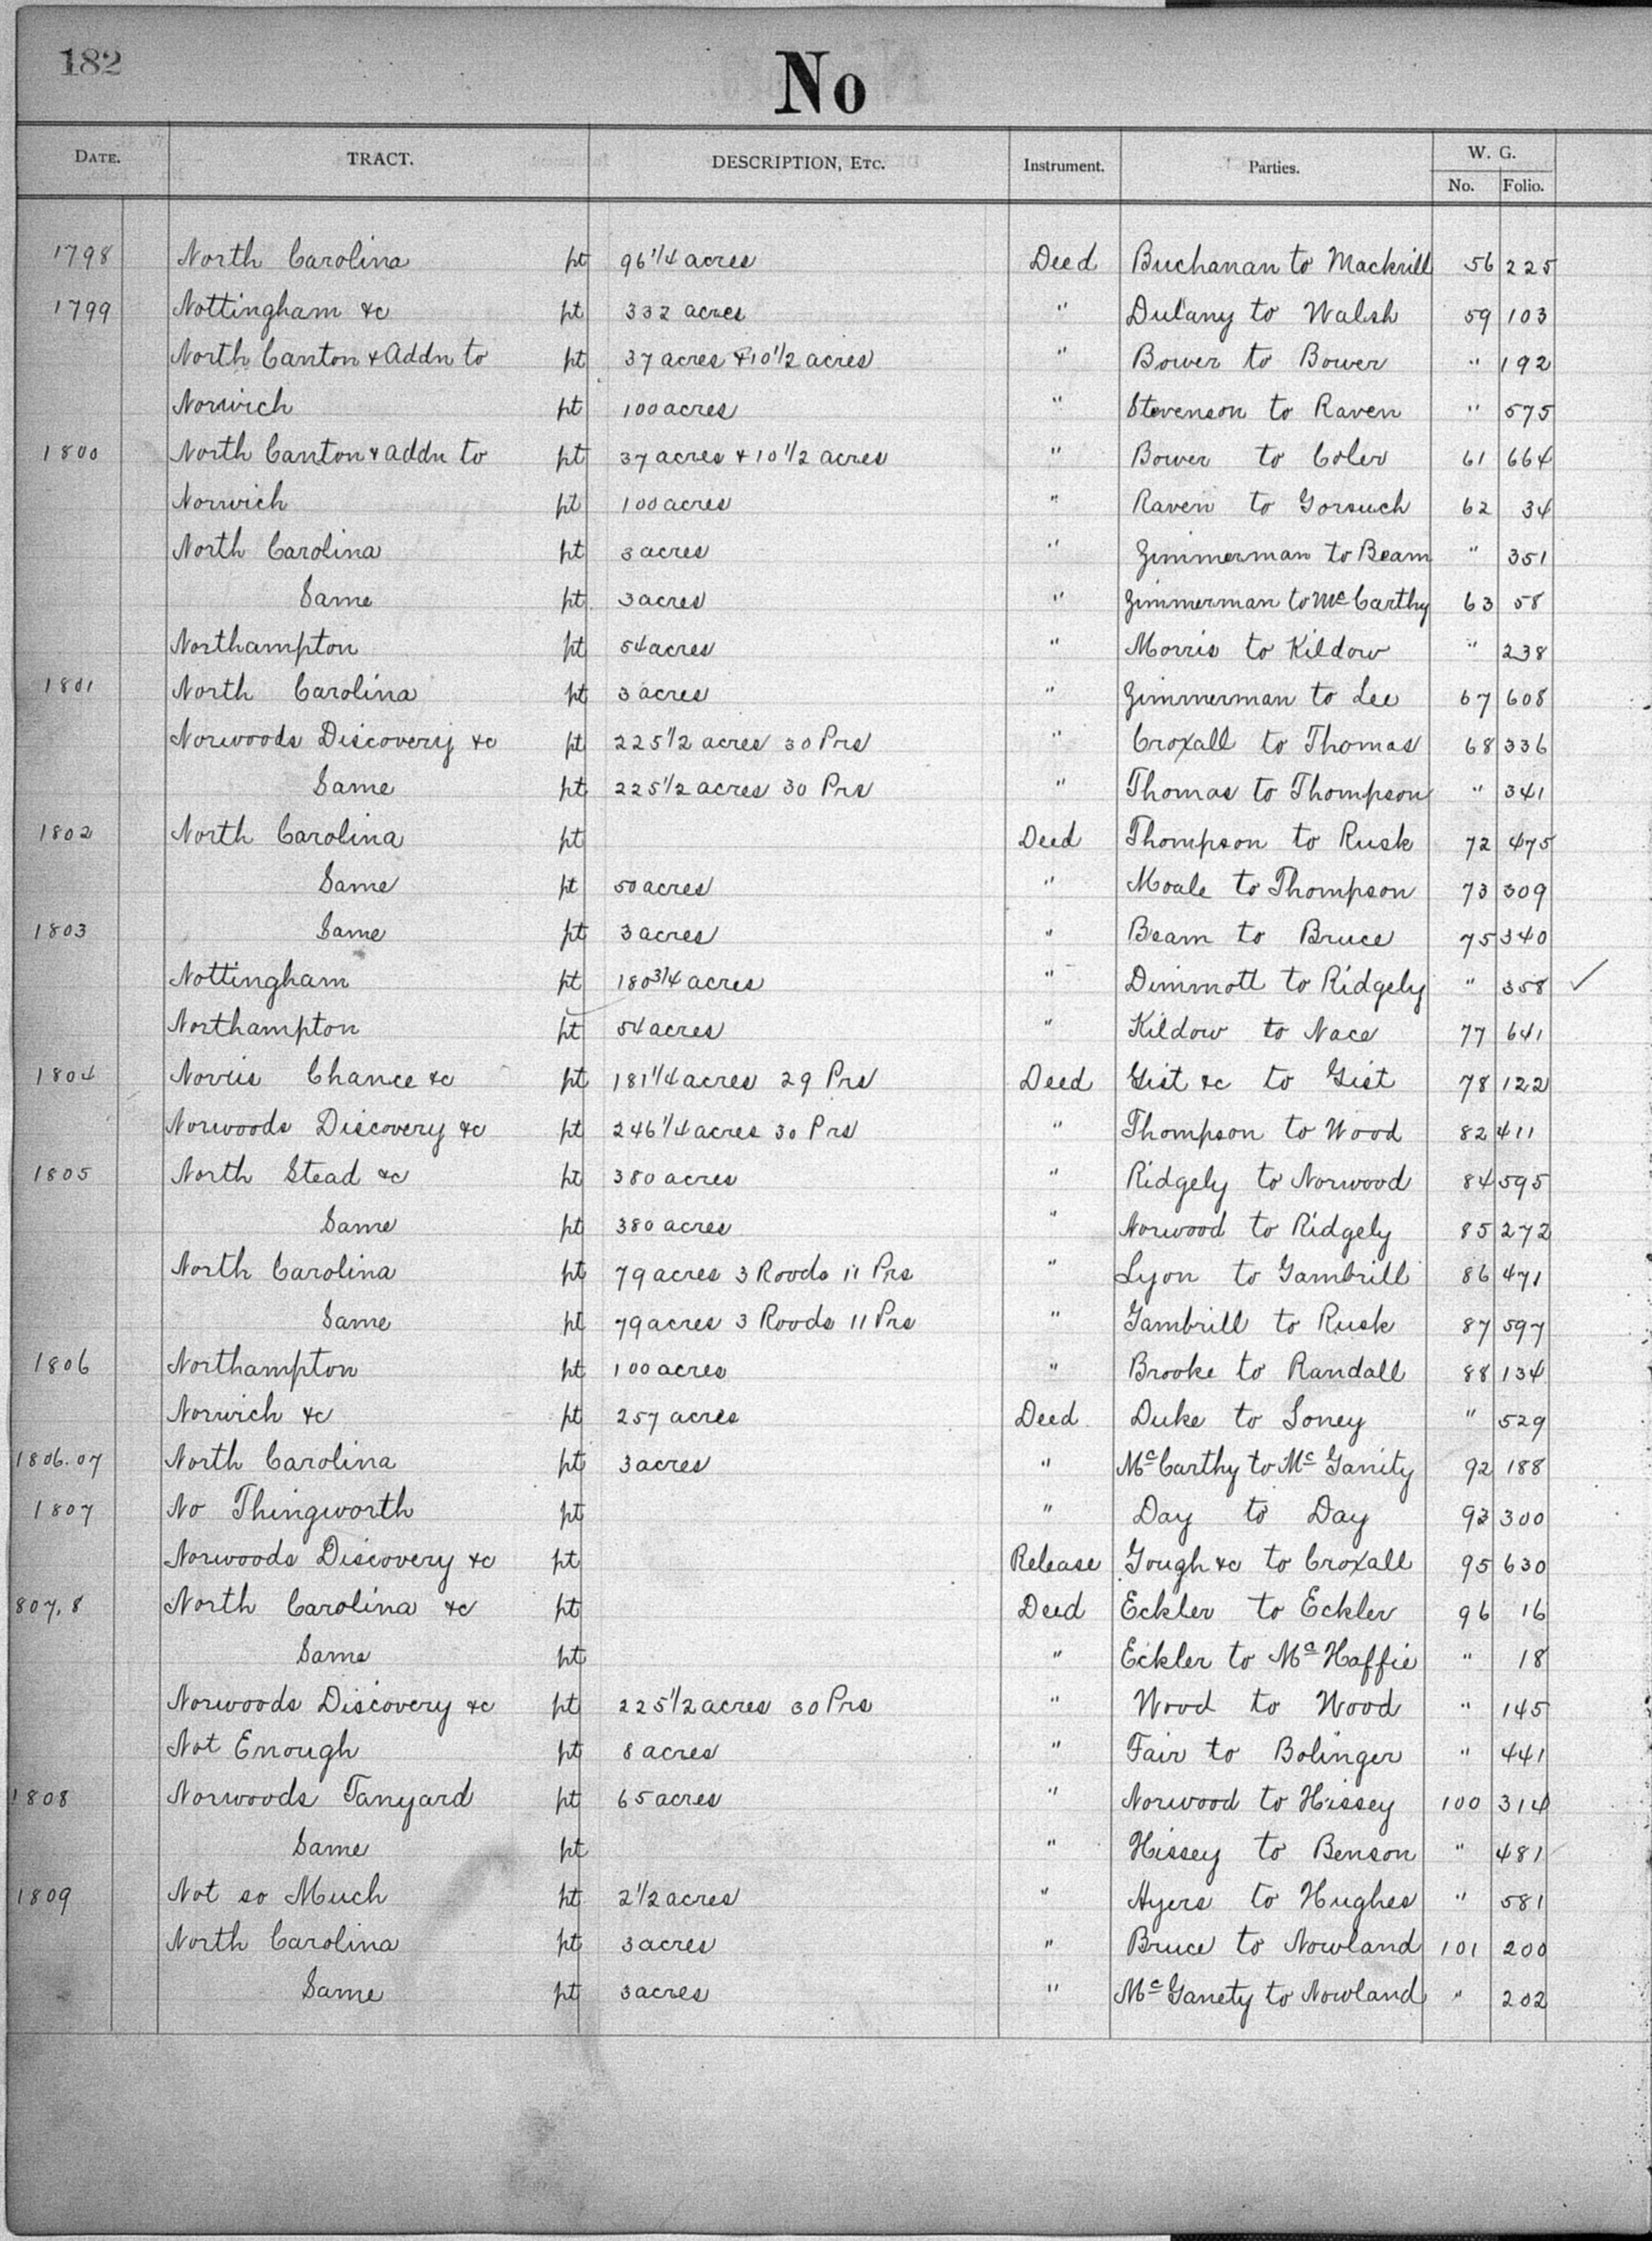 182
No
DATE. TRACT. DESCRIPTION, ETC. Instrument. Parties. W. G.
No. Folio.
1798 North Carolina pt 96 1/4 acres Deed Buchanan to Mackrill 56 225
1799 Nottingham &c pt 332 acres " Dulany to Walsh 59 103
North Canton & Addn to pt 37 acres & 10 1/2 acres " Bower to Bower " 192
Norwich pt 100 acres " Stevenson to Raven " 575
1800 North Canton & Addn to pt 37 acres & 10 1/2 acres " Bower to Coler 61 664
Norwich pt 100 acres " Raven to Gorsuch 62 34
North Carolina pt 3 acres " Zimmerman to Beam " 351
Same pt 3 acres " Zimmerman to McCarthy 63 58
Northampton pt 54 acres " Morris to Kildow " 238
1801 North Carolina pt 3 acres " Zimmerman to Lee 67 608
Norwoods Discovery &c pt 225 1/2 acres 30 Prs " Croxall to Thomas 68 336
Same pt 225 1/2 acres 30 Prs " Thomas to Thompson " 341
1802 North Carolina pt Deed Thompson to Rusk 72 475
Same pt 50 acres " Moale to Thompson 73 309
1803 Same pt 3 acres " Beam to Bruce 75 340
Nottingham pt 180 3/4 acres " Dimmott to Ridgely " 358 ✓
Northampton pt 54 acres " Kildow to Nace 77 641
1804 Norris Chance &c pt 181 1/4 acres 29 Prs Deed Gist &c to Gist 78 122
Norwoods Discovery &c pt 246 1/4 acres 30 Prs " Thompson to Wood 82 411
1805 North Stead &c pt 380 acres " Ridgely to Norwood 84 595
Same pt 380 acres " Norwood to Ridgely 85 272
North Carolina pt 79 acres 3 Roods 11 Prs " Lyon to Gambrill 86 471
Same pt 79 acres 3 Roods 11 Prs " Gambrill to Rusk 87 597
1806 Northampton pt 100 acres " Brooke to Randall 88 134
Norwich &c pt 257 acres Deed Duke to Loney " 529
1806.07 North Carolina pt 3 acres " McCarthy to McGanity 92 188
1807 No Thingworth pt " Day to Day 93 300
Norwoods Discovery &c pt Release Gough &c to Croxall 95 630
807.8 North Carolina &c pt Deed Eckler to Eckler 96 16
Same pt " Eckler to McHaffie " 18
Norwoods Discovery &c pt 225 1/2 acres 30 Prs " Wood to Wood " 145
Not Enough pt 8 acres " Fair to Bolinger " 441
1808 Norwoods Tanyard pt 65 acres " Norwood to Hissey 100 314
Same pt " Hissey to Benson " 481
1809 Not so Much pt 2 1/2 acres " Ayers to Hughes " 581
North Carolina pt 3 acres " Bruce to Nowland 101 200
Same pt 3 acres " McGanety to Nowland " 202